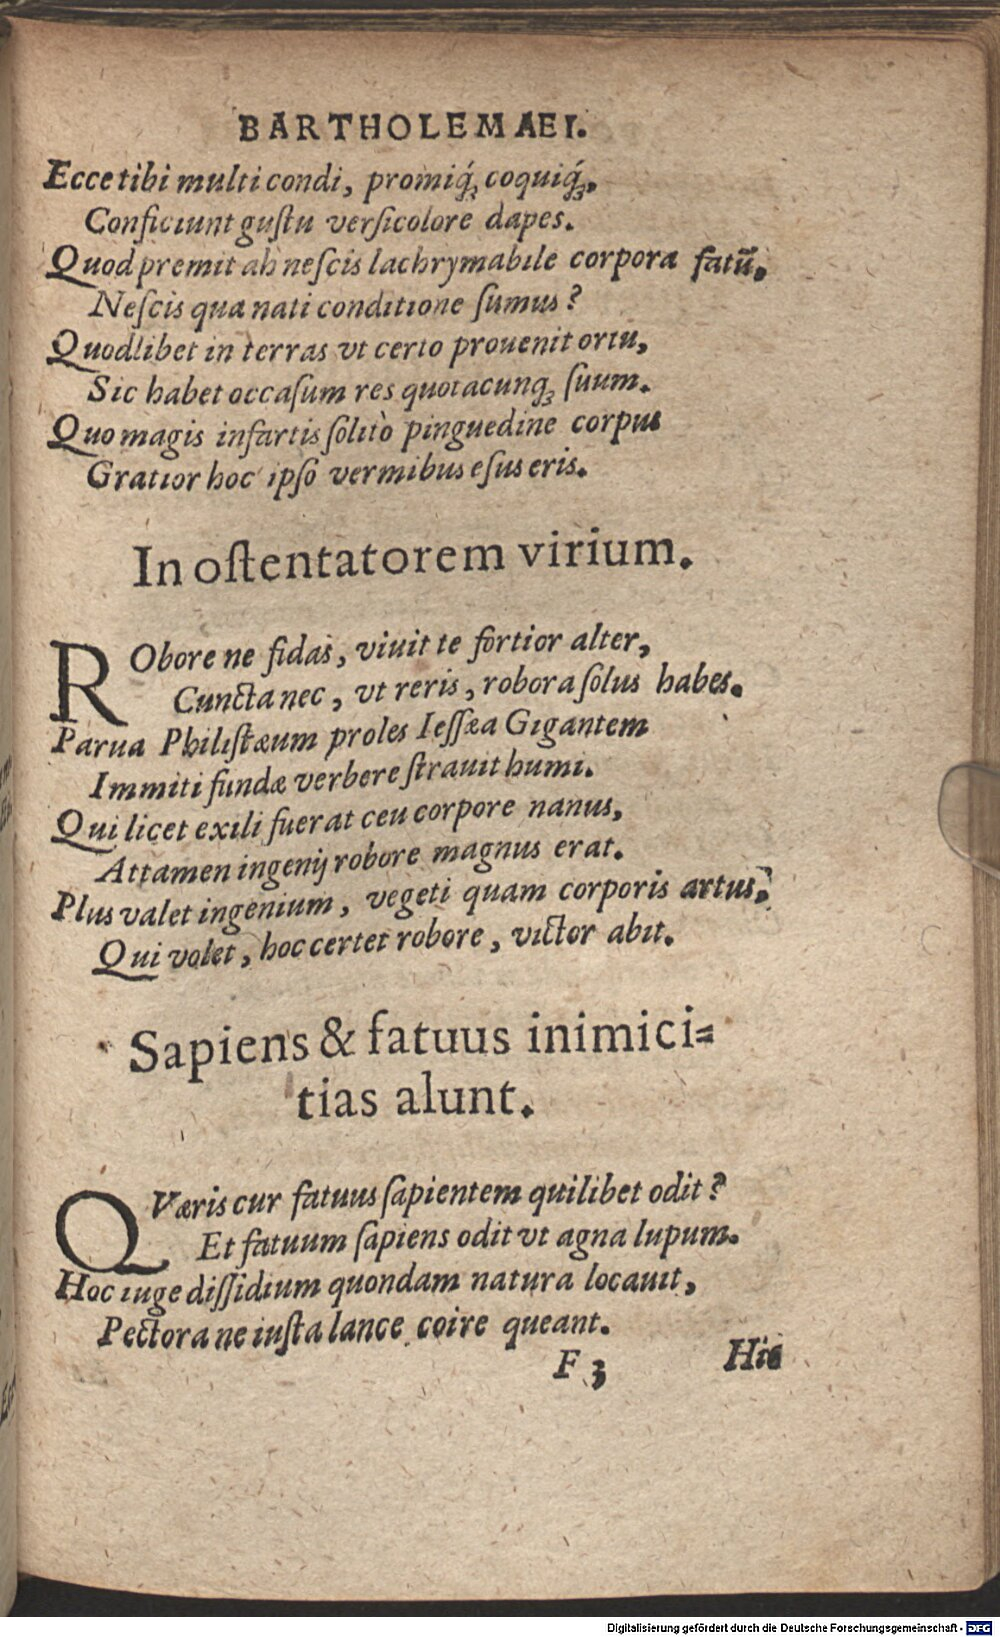 BARTHOLEMAEI.
Ecce tibi multi condi, promiq́ꝫ coquiq́ꝫ,
Conficiunt guſtu verſicolore dapes.
Quod premit ah neſcis lachrymabile corpora fatū,
Neſcis qua nati conditione ſumus?
Quodlibet in terras vt certo prouenit ortu,
Sic habet occaſum res quotacunqꝫ ſuum.
Quo magis infartis ſolitò pinguedine corpus
Gratior hoc ipſo vermibus eſus eris.
In oſtentatorem virium.
RObore ne fidas, viuit te fortior alter,
Cuncta nec, vt reris, robora ſolus habes.
Parua Philiſtæum proles Ieſſæa Gigantem
Immiti fundæ verbere ſtrauit humi.
Qui licet exili fuerat ceu corpore nanus,
Attamen ingenij robore magnus erat.
Plus valet ingenium, vegeti quam corporis artus,
Qui volet, hoc certet robore, victor abit.
Sapiens & fatuus inimici=
tias alunt.
QVæris cur fatuus ſapientem quilibet odit?
Et fatuum ſapiens odit vt agna lupum.
Hoc iuge diſſidium quondam natura locauit,
Pectora ne iuſta lance coire queant.
F 3 Hic
Digitalisierung gefördert durch die Deutsche Forschungsgemeinschaft - DFG